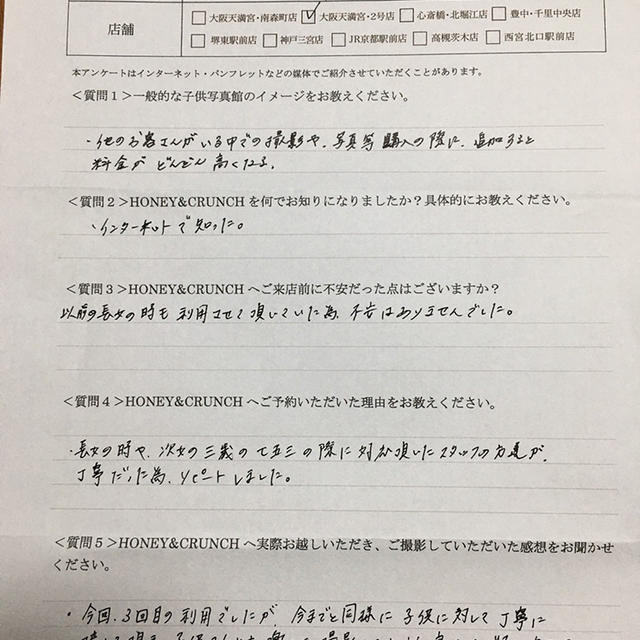 店舗
□大阪天満宮・南森町店 ☑大阪天満宮・2号店 □心斎橋・北堀江店 □豊中・千里中央店
□堺東駅前店 □神戸三宮店 □JR京都駅前店 □高槻茨木店 □西宮北口駅前店
本アンケートはインターネット・パンフレットなどの媒体でご紹介させていただくことがあります。
＜質問1＞一般的な子供写真館のイメージをお教えください。
・他のお客さんがいる中での撮影や、写真等購入の際に、追加すると
料金がどんどん高くなる。
＜質問2＞HONEY&CRUNCHを何でお知りになりましたか？具体的にお教えください。
・インターネットで知った。
＜質問3＞HONEY&CRUNCHへご来店前に不安だった点はございますか？
以前の長女の時も利用させて頂いていた為、不安はありませんでした。
＜質問4＞HONEY&CRUNCHへご予約いただいた理由をお教えください。
・長女の時や、次女の三歳の七五三の際に対応頂いたスタッフの方達が、
丁寧だった為、リピートしました。
＜質問5＞HONEY&CRUNCHへ実際お越しいただき、ご撮影していただいた感想をお聞かせ
ください。
・今回、3回目の利用でしたが、今までと同様に子供に対して丁寧に